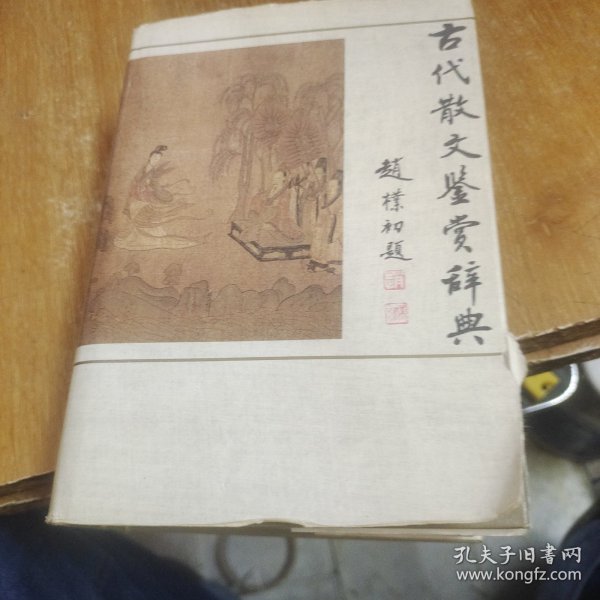 古代散文鉴赏辞典
趙樸初题
孔夫子旧书网
www.kongfz.com